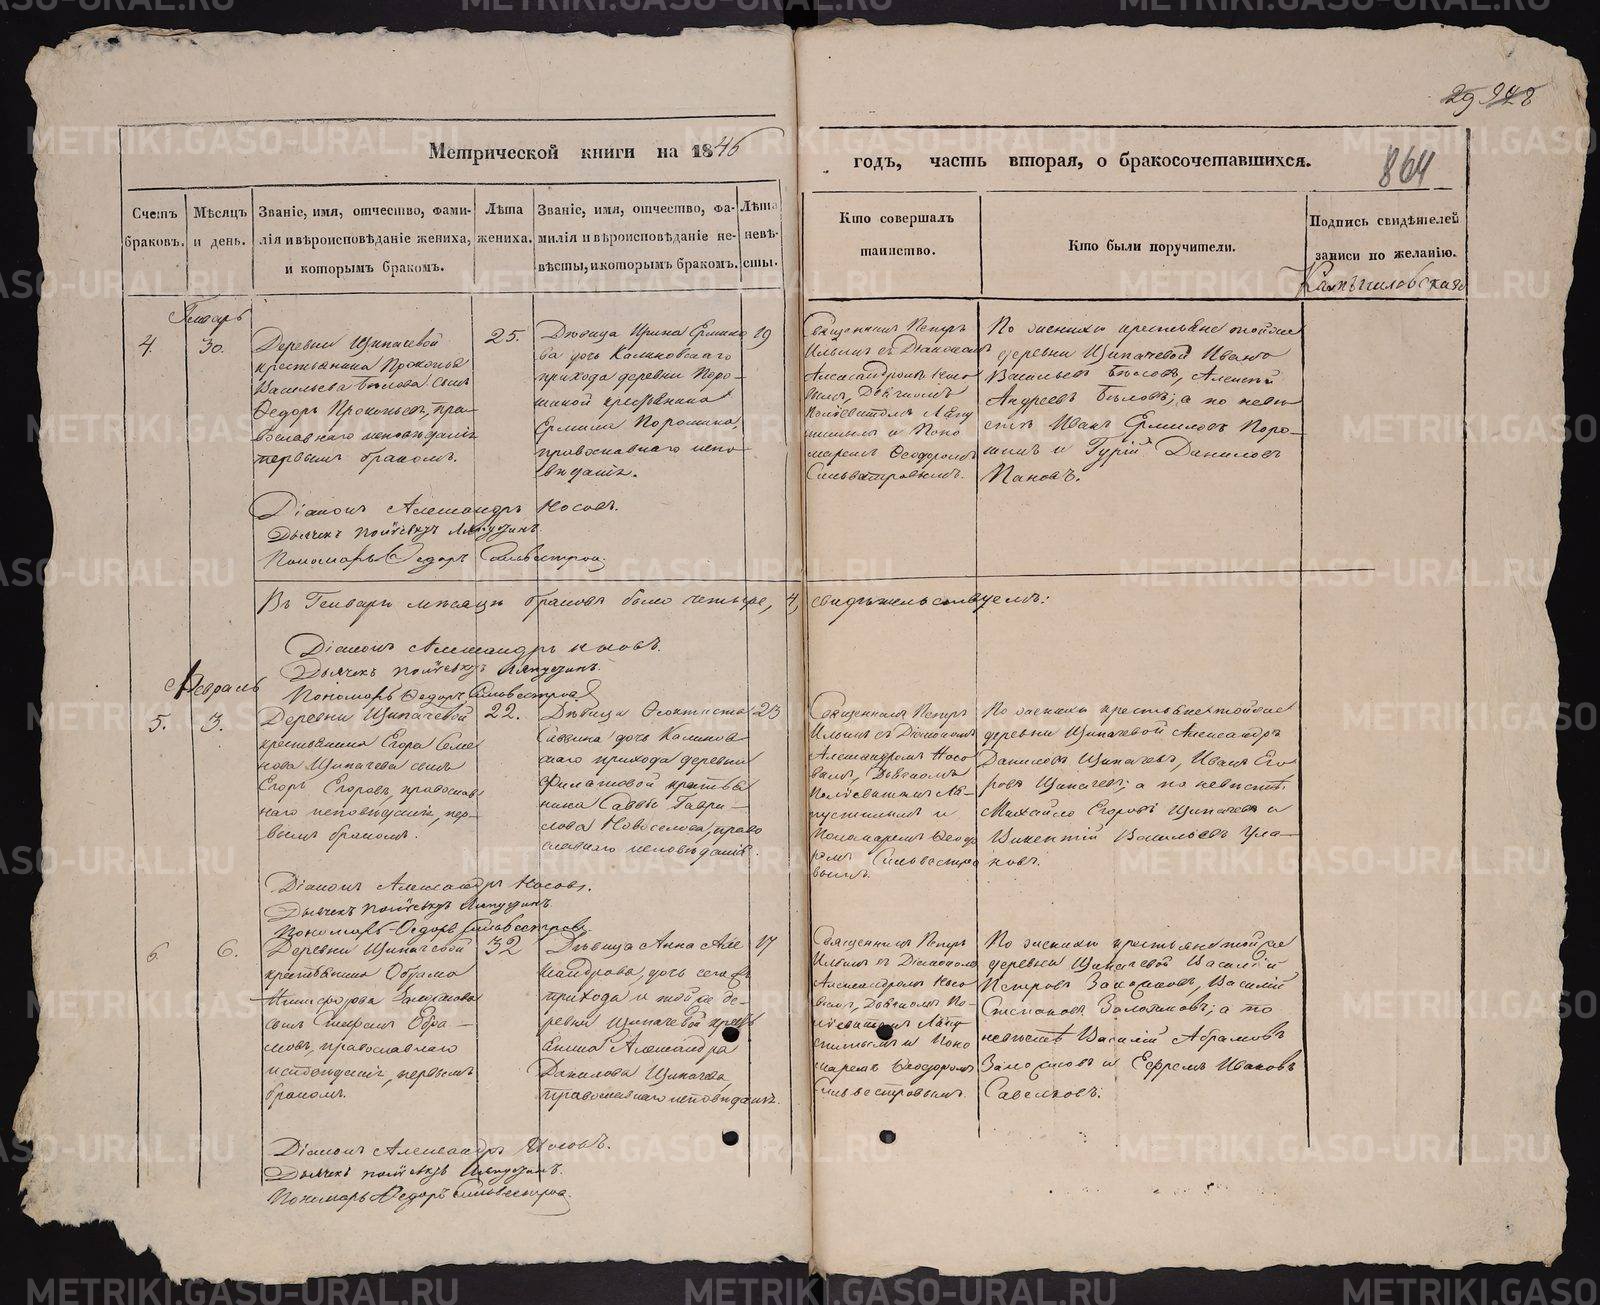 29
864
Метрической книги на 1846
годъ, часть вторая, о бракосочетавшихся.
Счетъ браковъ.
Мѣсяцъ и день.
Званіе, имя, отчество, фами-
лія и вѣроисповѣданіе жениха,
и которымъ бракомъ.
Лѣта жениха.
Званіе, имя, отчество, фа-
милія и вѣроисповѣданіе не-
вѣсты, и которымъ бракомъ.
Лѣта
невѣ-
сты.
Кто совершалъ
таинство.
Кто были поручители.
Подпись свидѣтелей
записи по желанію.
Генварь
4.
30.
Деревни Щипачевой
крестьянина Прокопья
Васильева Бѣлова сынъ
Ѳедоръ Прокопьевъ, пра-
вославнаго исповѣданія
первымъ бракомъ.
25.
Дѣвица Ирина Ермило
ва дочь Калиновскаго
прихода деревни Поро-
шиной крестьянина
Ермила Порошина,
православнаго испо-
вѣданія.
19
Священникъ Петръ
Ильинъ съ Діакономъ
Александромъ Носо
вымъ, Дьячкомъ
Поліевктомъ Ляпу
стинымъ и Поно
маремъ Ѳеодоромъ
Сильвестровымъ.
По женихѣ крестьяне тойже
деревни Щипачевой Иванъ
Васильевъ Бѣловъ, Алексѣй
Андреевъ Бѣловъ; а по невѣ
стѣ Иванъ Ермиловъ Поро-
шинъ и Гурій Даниловъ
Пановъ.
Діаконъ Александръ Носовъ.
Дьячекъ Поліевктъ Ляпустинъ.
Пономарь Ѳедоръ Сильвестровъ
Въ Генварѣ мѣсяцѣ браковъ было четыре, 4, свидѣтельствуемъ:
Діаконъ Александръ Носовъ.
Дьячекъ Поліевктъ Ляпустинъ.
Пономарь Ѳедоръ Сильвестровъ
Февраль
5.
3.
Деревни Щипачевой
крестьянина Егора Семе
нова Щипачева сынъ
Егоръ Егоровъ, православ
наго исповѣданія, пер-
вымъ бракомъ.
22.
Дѣвица Ѳеоктиста
Саввина дочь Калинов
скаго прихода деревни
крестья
нина Саввы Гаври-
лова Новоселова, право
славнаго исповѣданія.
23
Священникъ Петръ
Ильинъ съ Діакономъ
Александромъ Носо
вымъ, Дьячкомъ
Поліевктомъ Ля-
пустинымъ и
Пономаремъ Ѳеодо
ромъ Сильвестро
вымъ.
По женихѣ крестьяне тойже
деревни Щипачевой Александръ
Даниловъ Щипачевъ, Иванъ Его
ровъ Щипачевъ; а по невѣстѣ
Михайло Егоровъ Щипачевъ и
Викентій Васильевъ Ула-
новъ.
Діаконъ Александръ Носовъ.
Дьячекъ Поліевктъ Ляпустинъ
Пономарь Ѳедоръ Сильвестровъ
6.
6.
Деревни Щипачевой
крестьянина Обрама
сынъ Обра-
мовъ, православнаго
исповѣданія, первымъ
бракомъ.
32
Дѣвица Анна Але
ксандрова, дочь сегожъ
прихода и той же де-
ревни Щипачевой кресть
янина Александра
Данилова Щипачева,
православнаго исповѣданія.
17
Священникъ Петръ
Ильинъ съ Діакономъ
Александромъ Носо
вымъ, Дьячкомъ По-
ліевктомъ Ляпу
стинымъ и Поно
маремъ Ѳеодоромъ
Сильвестровымъ.
По женихѣ крестьяне тойже
деревни Щипачевой Василій
Петровъ Василій
Степановъ а по
невѣстѣ Василій Абрамовъ
и Ефремъ Ивановъ
Савелковъ.
Діаконъ Александръ Носовъ.
Дьячекъ Поліевктъ Ляпустинъ.
Пономарь Ѳедоръ Сильвестровъ
METRIKI.GASO-URAL.RU